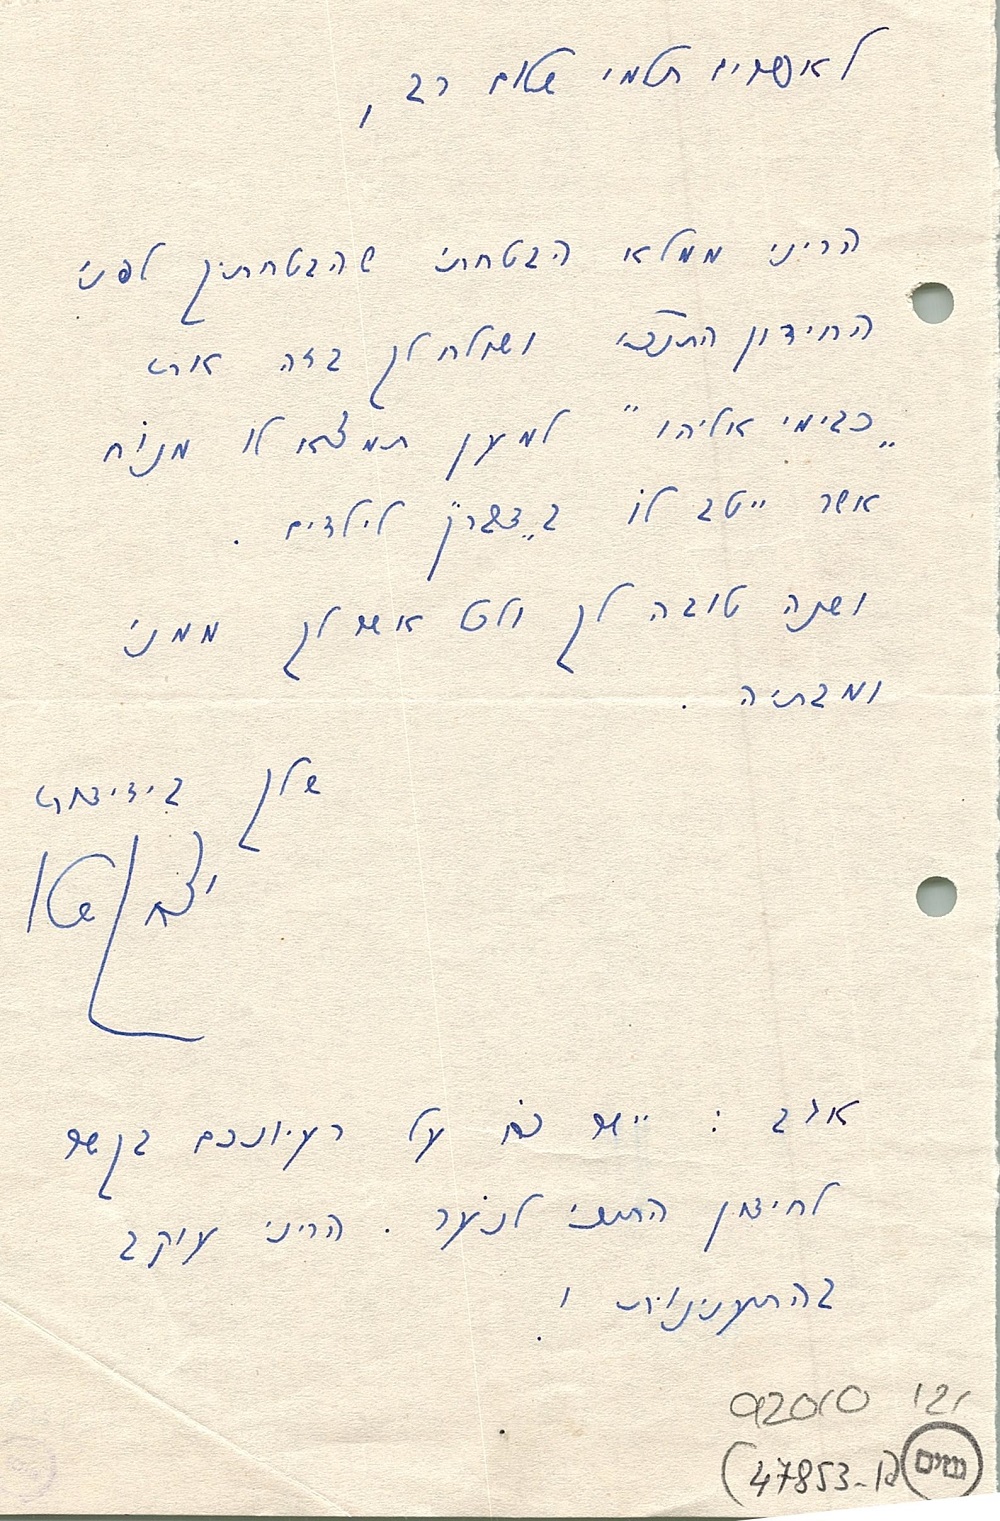 לאפרים תלמי שלום רב,
הריני ממלא הבטחתי שהבטחתיך לפני
החידון התנ"כי ושולח לך בזה את
"כבימי אליהו" למען תמצא לו מנוח
אשר ייטב לו ב"דבר" לילדים.
ושנה טובה לך ולכל אשר לך ממני
ומבתיה.
שלך בידידות
יצחק
אגב: יישר כח על רעיונכם בקשר
לחידון התנ"כי לנוער. הריני עוקב
בהתעניינות!
47853